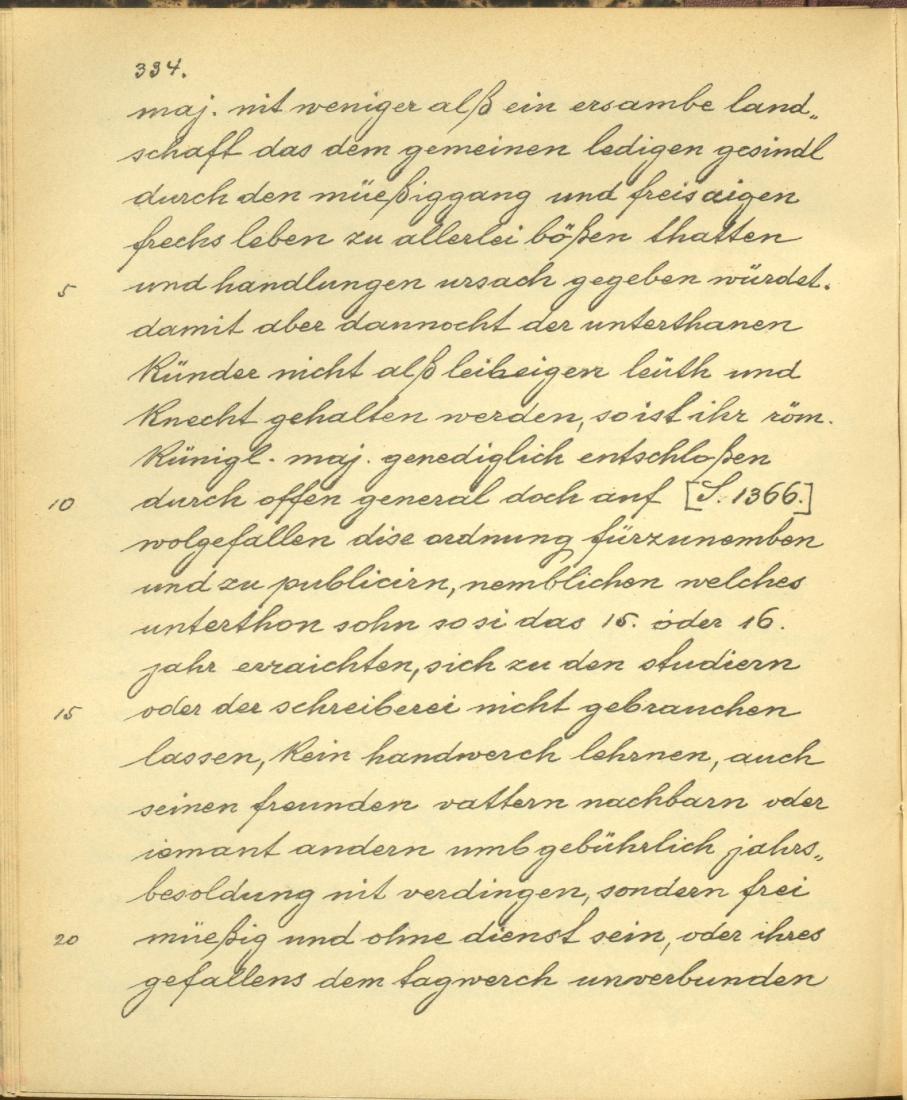 334.
maj. nit weniger alß ein ersambe land„
schaft das dem gemeinen ledigen gesindl
durch den müeßiggang und freis aigen
frechs leben zu allerlei bößen thatten
5 und handlungen ursach gegeben würdet.
damit aber dannocht der unterthanen
Künder nicht alß leibeigen leüth und
Knecht gehalten werden, so ist ihr röm.
Künigl. maj. genediglich entschloßen
10 durch offen general doch auf [S. 1366.]
wolgefallen dise ordnung fürzunemben
und zu publicirn, nemblichen welches
unterthon sohn so si das 15. oder 16.
jahr erraichten, sich zu den studiern
15 oder der schreiberei nicht gebrauchen
lassen, Kein handwerch lehrnen, auch
seinen freunden vattern nachbarn oder
iemant andern umb gebührlich jahrs„
besoldung nit verdingen, sondern frei
20 müeßig und ohne dienst sein, oder ihres
gefallens dem tagwerch unverbunden